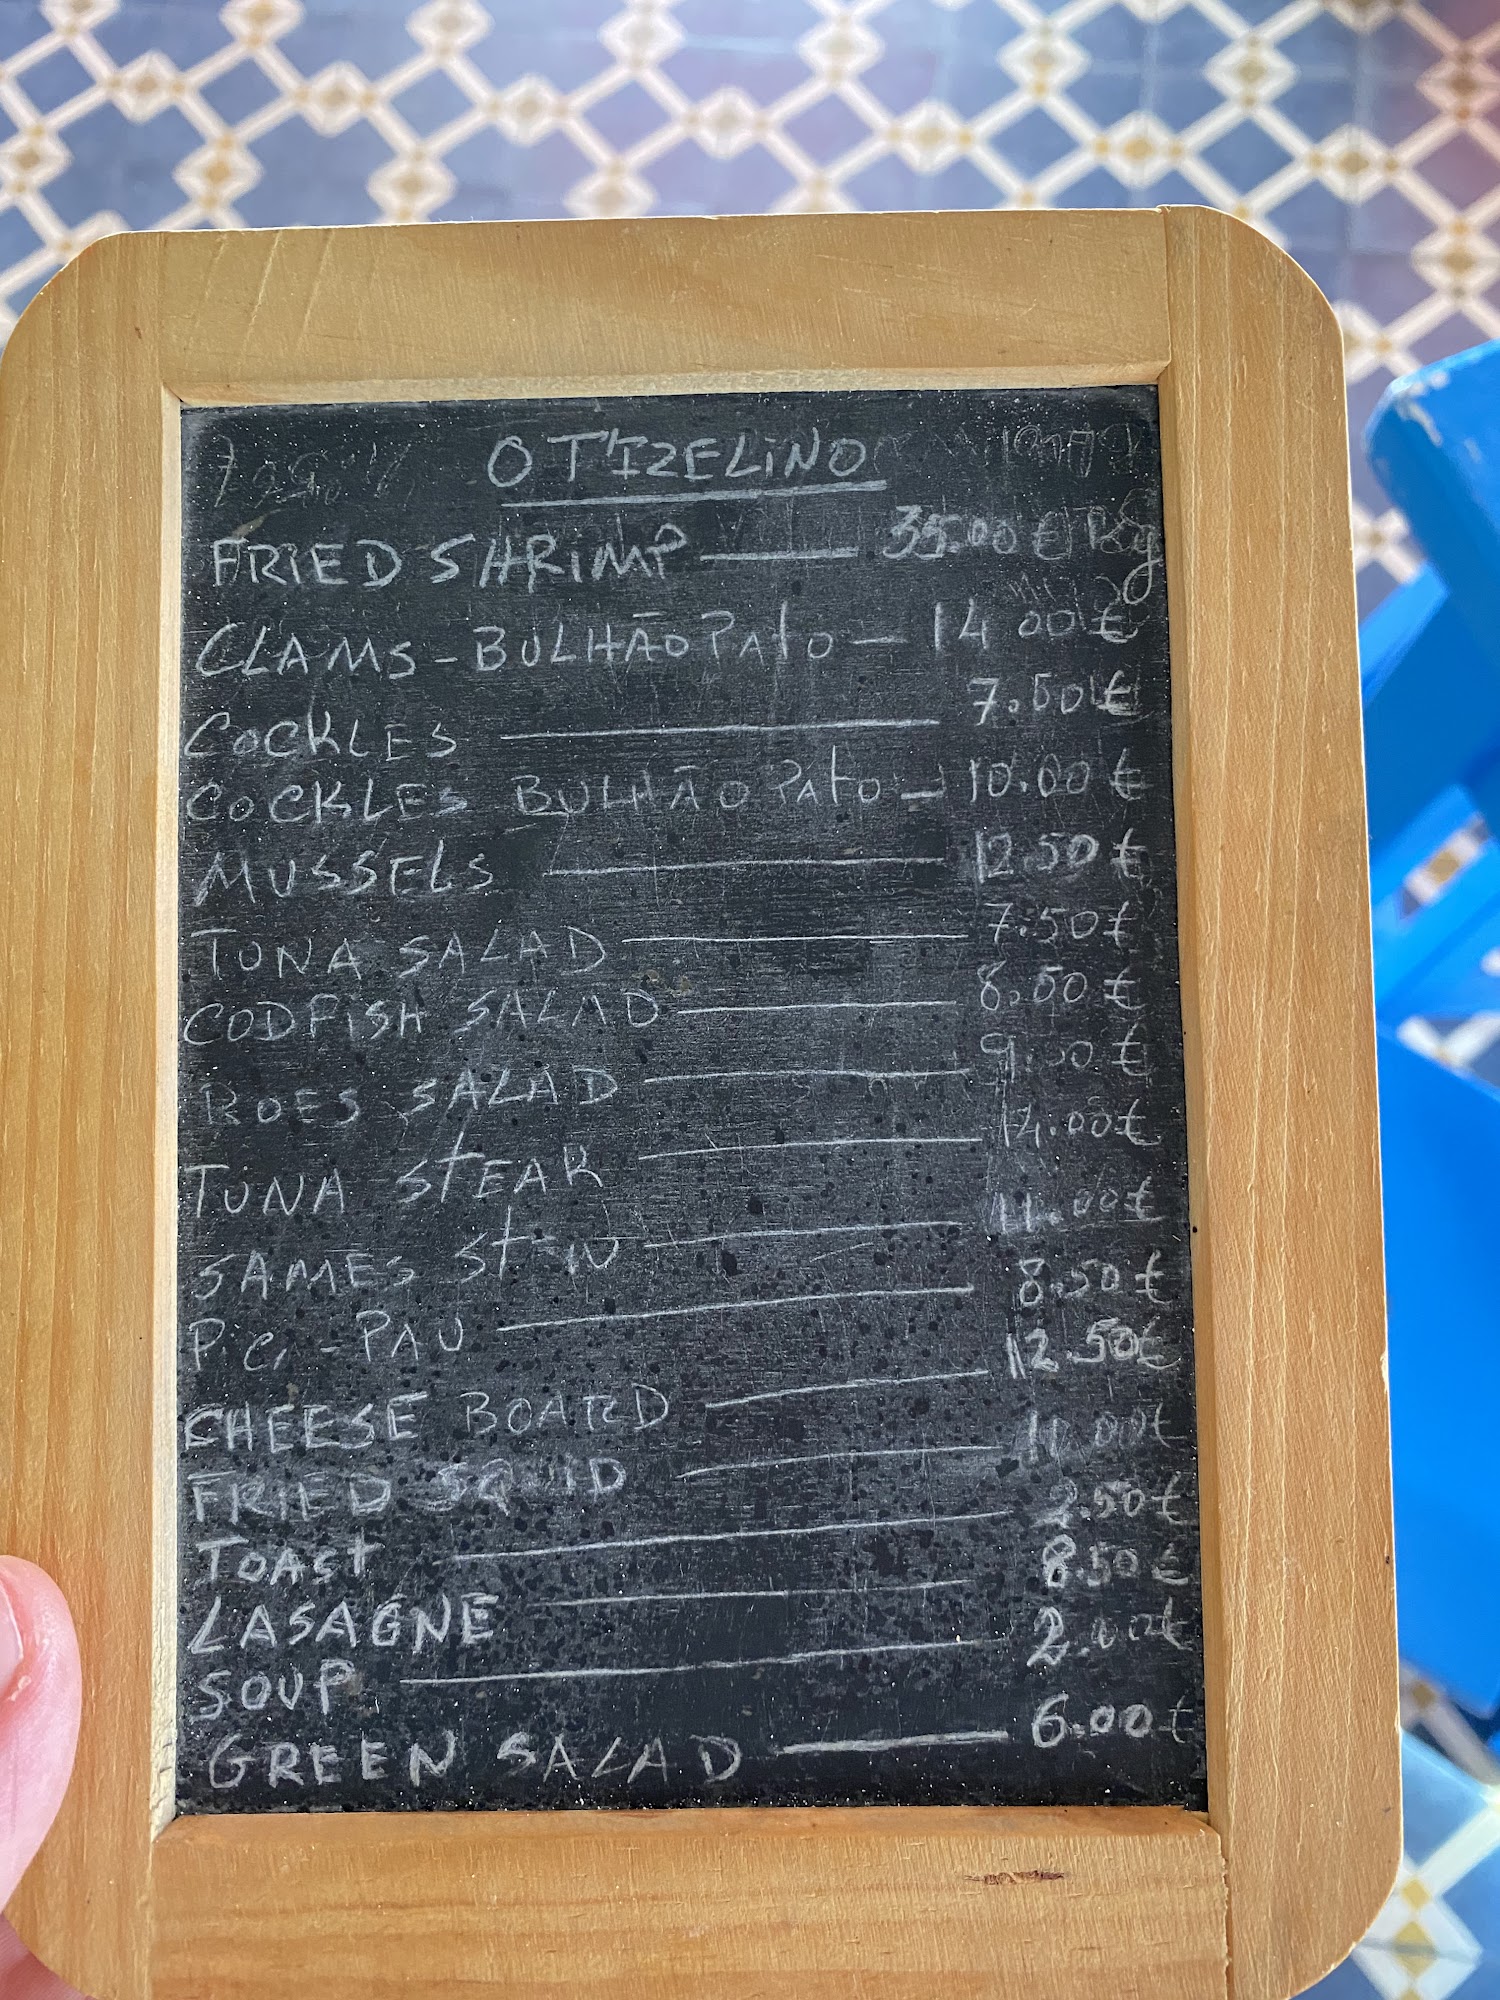 O T'IZELINO
FRIED SHRIMP — 35.00 € Kg
CLAMS - BULHÃO PATO — 14.00 €
COCKLES — 7.50 €
COCKLES BULHÃO PATO — 10.00 €
MUSSELS — 12.50 €
TUNA SALAD — 7.50 €
CODFISH SALAD — 8.50 €
ROES SALAD — 9.00 €
TUNA STEAK — 14.00 €
SAMES STEW — 11.00 €
PICA-PAU — 8.50 €
CHEESE BOARD — 12.50 €
FRIED SQUID — 11.00 €
TOAST — 2.50 €
LASAGNE — 8.50 €
SOUP — 2.00 €
GREEN SALAD — 6.00 €